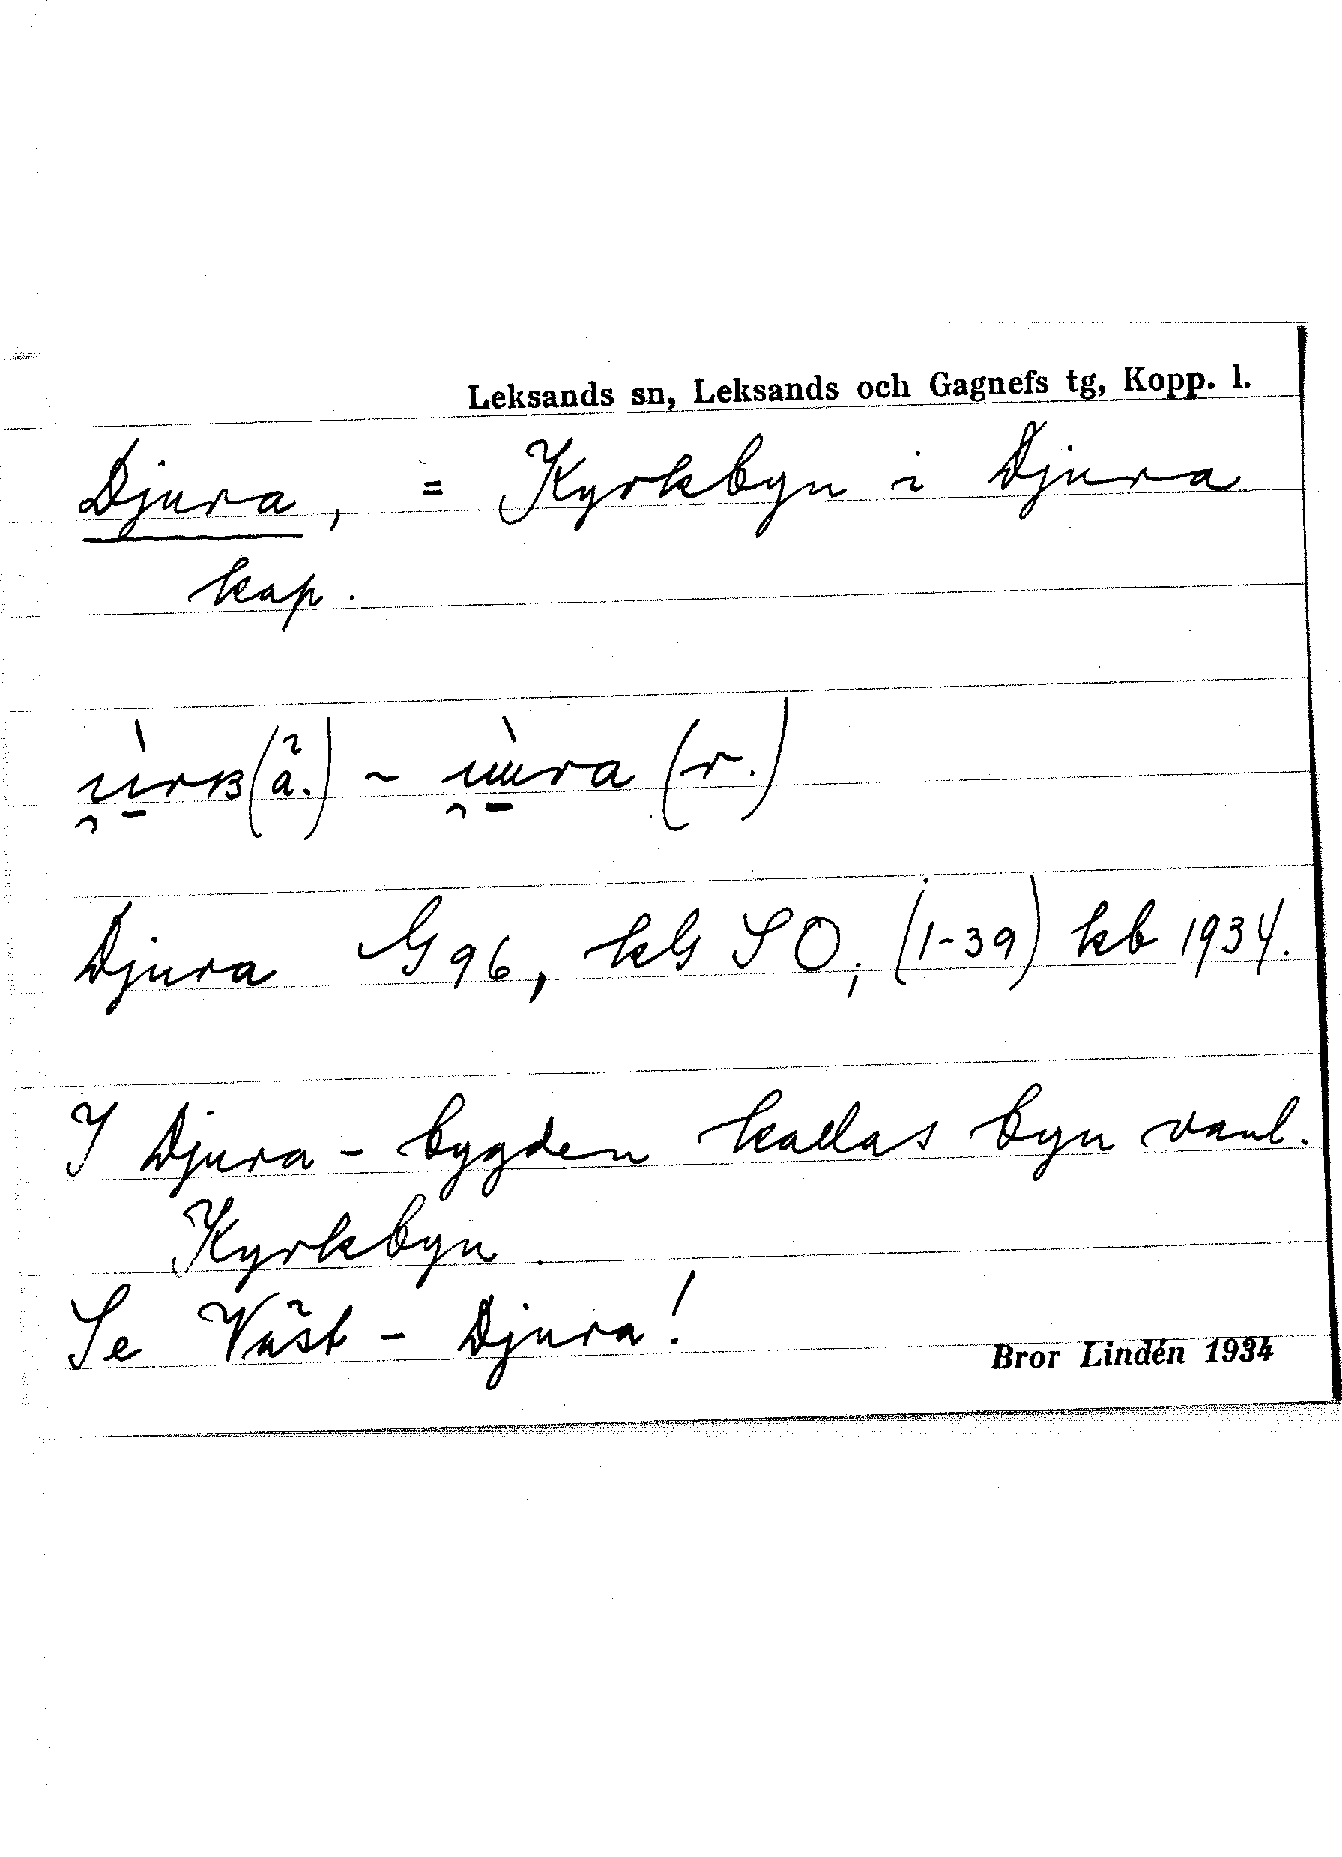 Leksands sn, Leksands och Gagnefs tg, Kopp. l.
Djura, = Kyrkbyn i Djura
kap.
(ä.) ~ (r.)
Djura G 96, kG SO; (1-39) kb 1934.
I Djura-bygden kallas byn vanl.
Kyrkbyn.
Se Väst-Djura!
Bror Lindén 1934